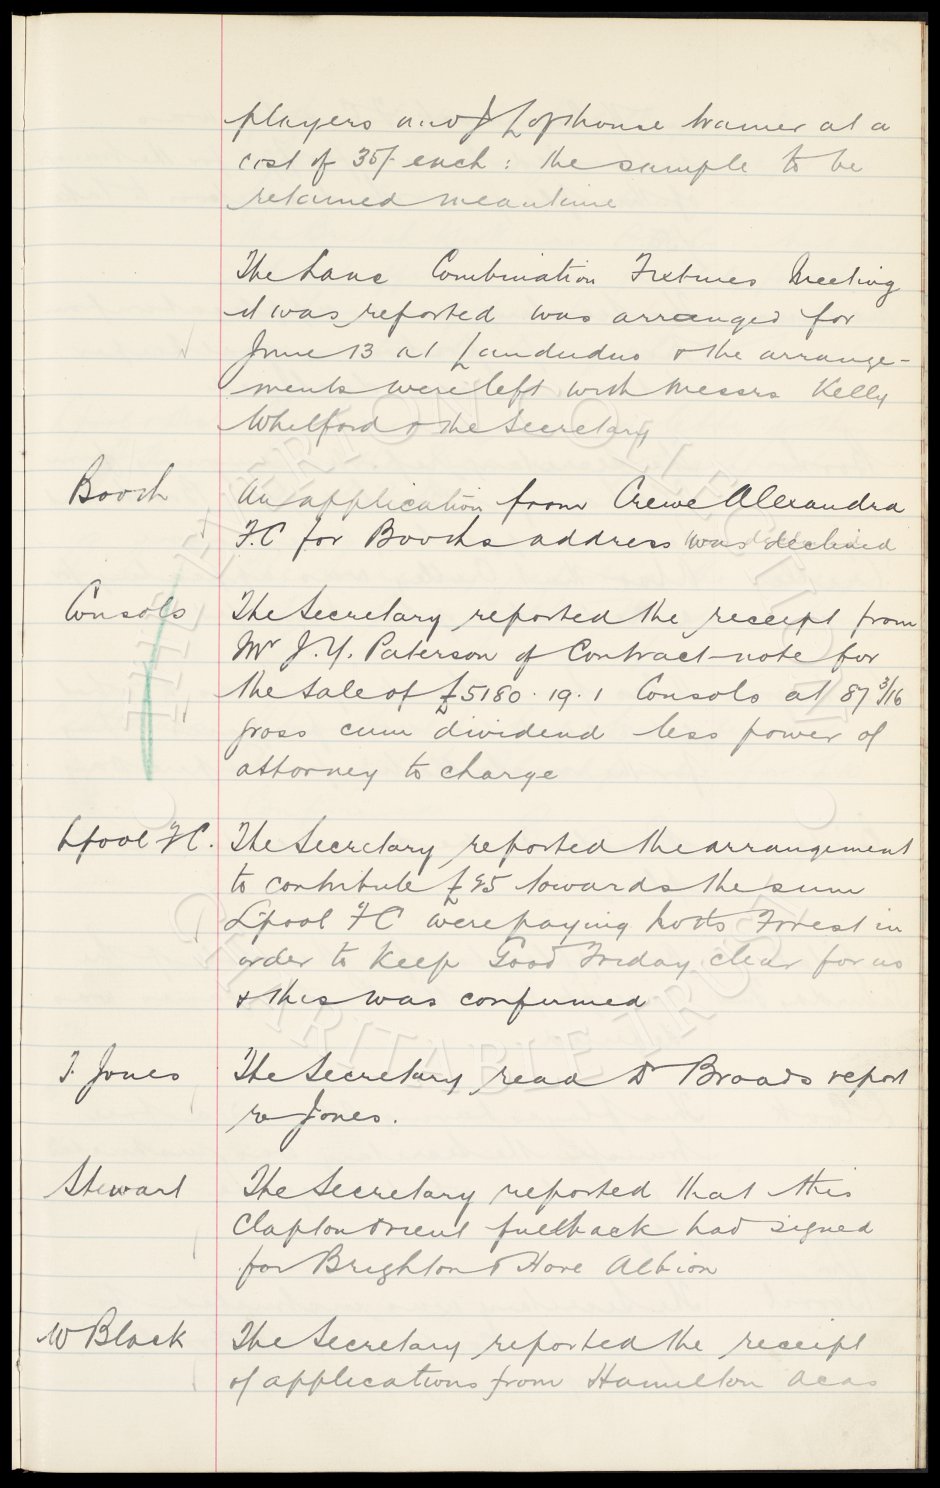 players and J Lofthouse trainer at a
cost of 35/- each: the sample to be
retained meantime
The Lanc Combination Fixtures Meeting
it was reported was arranged for
June 13 at Landudno & the arrange-
ments were left with Messrs Kelly
Whelford & the Secretary
Booth
An application from Crewe Alexandra
F.C for Booths address was declined
Consols
The Secretary reported the receipt from
Mr J.Y. Paterson of Contract-note for
the Sale of £5180.19.1 Consols at 87 3/16
gross cum dividend less power of
attorney to charge
Lpool FC.
The Secretary reported the arrangement
to contribute £95 towards the sum
L'pool FC were paying Notts Forest in
order to keep Good Friday clear for us
& this was confirmed
T. Jones
The Secretary read Dr Broads report
re Jones.
Stewart
The Secretary reported that this
Clapton Orient fullback had signed
for Brighton & Hove Albion
W Black
The Secretary reported the receipt
of applications from Hamilton Acas
THE EVERTON COLLECTION
CHARITABLE TRUST